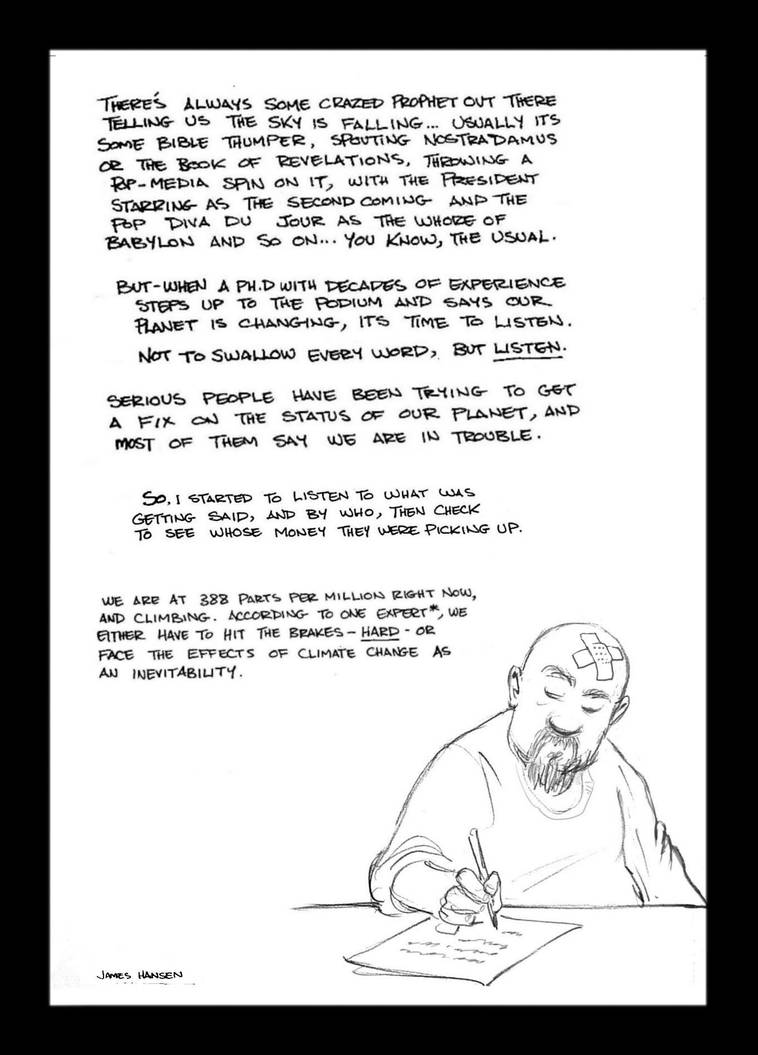 THERE'S ALWAYS SOME CRAZED PROPHET OUT THERE
TELLING US THE SKY IS FALLING... USUALLY ITS
SOME BIBLE THUMPER, SPOUTING NOSTRADAMUS
OR THE BOOK OF REVELATIONS, THROWING A
POP-MEDIA SPIN ON IT, WITH THE PRESIDENT
STARRING AS THE SECOND COMING AND THE
POP DIVA DU JOUR AS THE WHORE OF
BABYLON AND SO ON... YOU KNOW, THE USUAL.
BUT-WHEN A PH.D WITH DECADES OF EXPERIENCE
STEPS UP TO THE PODIUM AND SAYS OUR
PLANET IS CHANGING, ITS TIME TO LISTEN.
NOT TO SWALLOW EVERY WORD, BUT LISTEN.
SERIOUS PEOPLE HAVE BEEN TRYING TO GET
A FIX ON THE STATUS OF OUR PLANET, AND
MOST OF THEM SAY WE ARE IN TROUBLE.
SO, I STARTED TO LISTEN TO WHAT WAS
GETTING SAID, AND BY WHO, THEN CHECK
TO SEE WHOSE MONEY THEY WERE PICKING UP.
WE ARE AT 388 PARTS PER MILLION RIGHT NOW,
AND CLIMBING. ACCORDING TO ONE EXPERT*, WE
EITHER HAVE TO HIT THE BRAKES - HARD - OR
FACE THE EFFECTS OF CLIMATE CHANGE AS
AN INEVITABILITY.
JAMES HANSEN